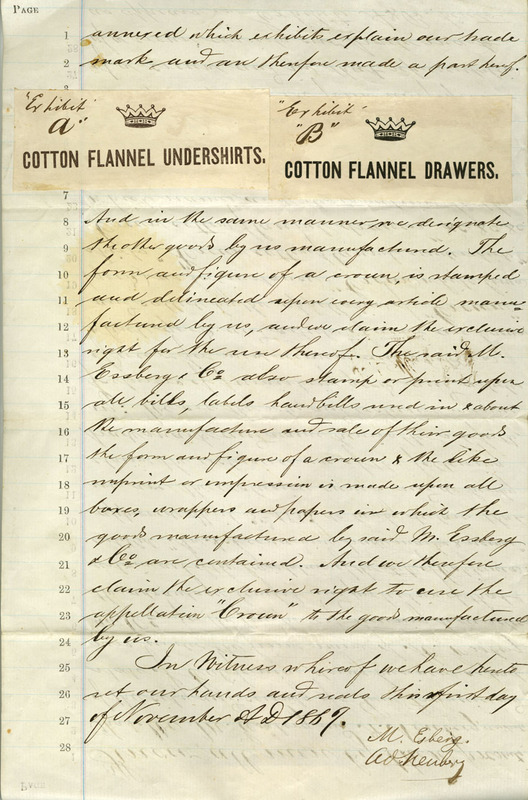 PAGE
1 annexed which exhibits explain our trade
2 mark and are therefore made a part hereof.
"Exhibit A"
COTTON FLANNEL UNDERSHIRTS.
"Exhibit "B"
COTTON FLANNEL DRAWERS.
7
8 And in the same manner, we designate
9 the other goods by us manufactured. The
10 form and figure of a crown, is stamped
11 and delineated upon every article manu=
12 factured by us, and we claim the exclusive
13 right for the use thereof. The said M.
14 Essberg & Co also stamp or print upon
15 all bills, labels handbills used in & about
16 the manufacture and sale of their goods
17 the form and figure of a crown & the like
18 imprint or impression is made upon all
19 boxes, wrappers and papers in which the
20 goods manufactured by said M. Essberg
21 & Co are contained. And we therefore
22 claim the exclusive right to use the
23 appellation "Crown" to the goods manufactured
24 by us.
25 In Witness whereof we have hereto
26 set our hands and seals this first day
27 of November A D 1869.
28 M. Esberg.